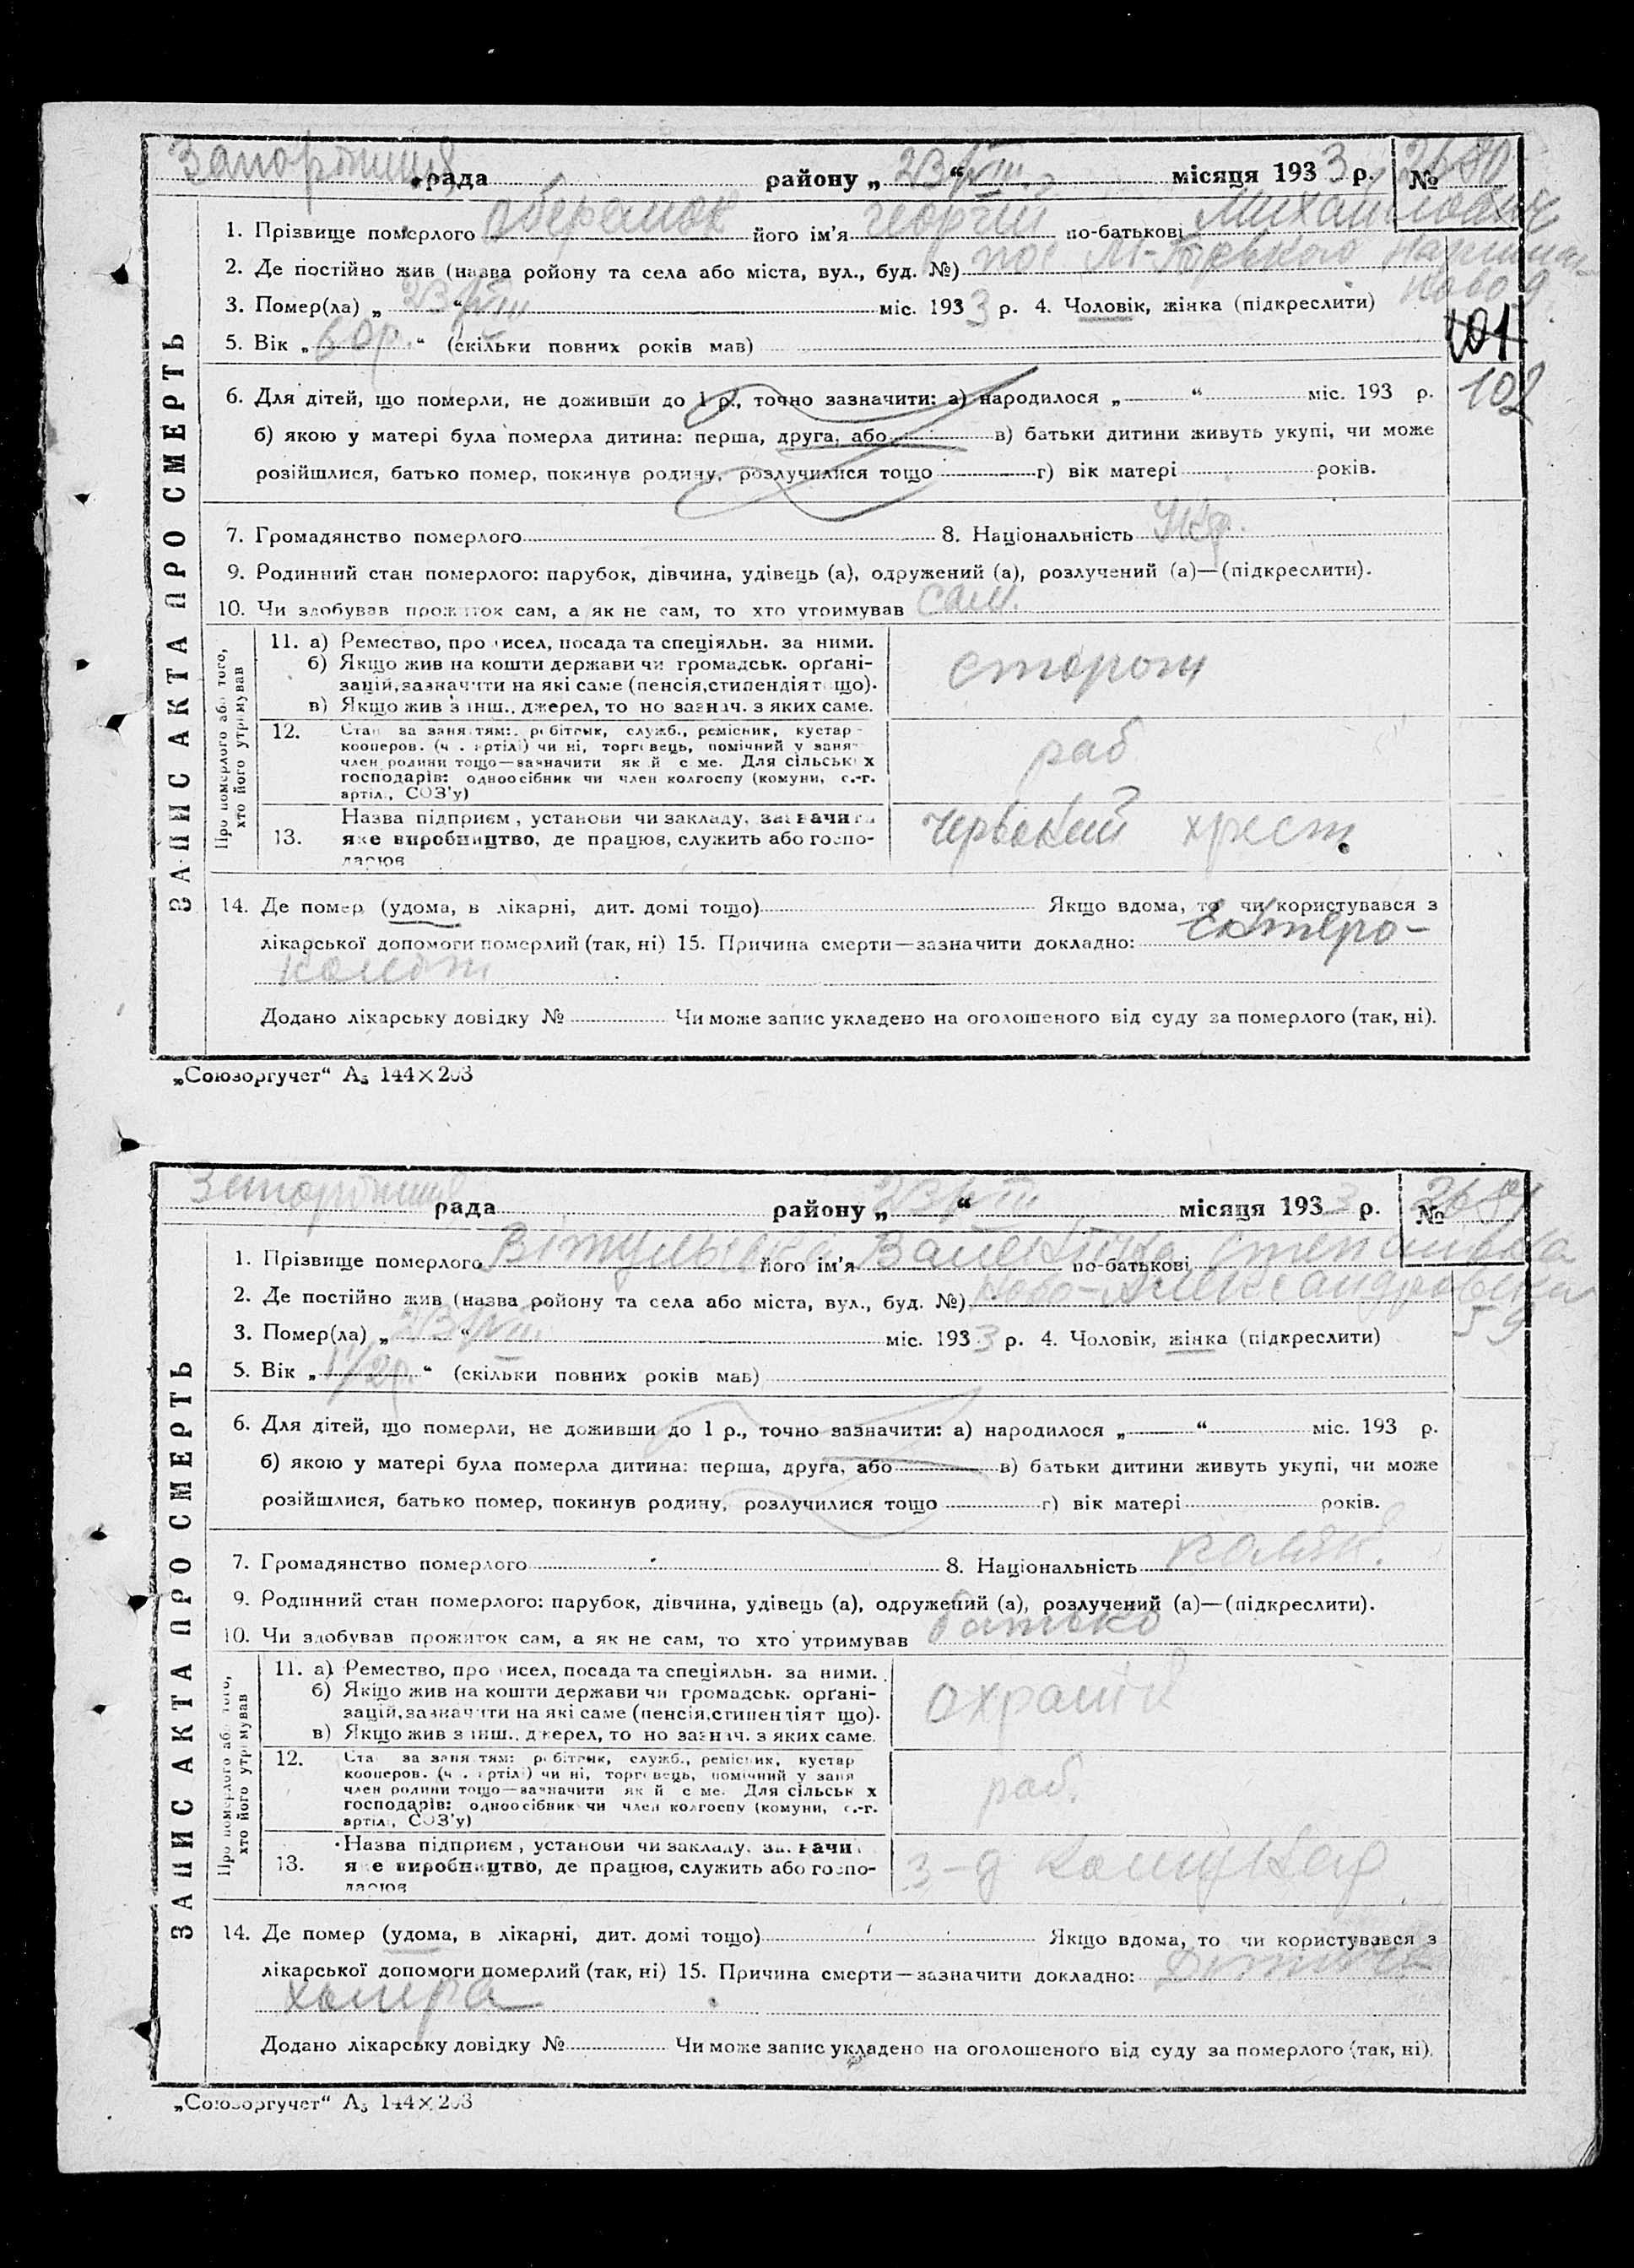 рада района „ 23/VIII “ місяця 1933 р. № 2680
1. Прізвище померлого його ім'я Георгій по-батькові Михайлович
2. Де постійно жив (назва ройону та села або міста, вул., буд. №) пос М-Горького
3. Помер(ла) „ 23/VIII “ міс. 1933 р. 4. Чоловік, жінка (підкреслити)
5. Вік „ 60 р. “ (скільки повних років мав)
101
102
6. Для дітей, що померли, не доживши до 1 р., точно зазначити: а) народилося „ “ міс. 193 р.
б) якою у матері була померла дитина: перша, друга, або в) батьки дитини живуть укупі, чи може
розійшлися, батько помер, покинув родину, розлучилися тощо г) вік матері років.
7. Громадянство померлого 8. Національність Укр.
9. Родинний стан померлого: парубок, дівчина, удівець (а), одружений (а), розлучений (а)—(підкреслити).
10. Чи здобував прожиток сам, а як не сам, то хто утримував сам.
11. а) Ремество, про исел, посада та спеціяльн. за ними.
б) Якщо жив на кошти держави чи громадськ. орґані-
зацій, зазначити на які саме (пенсія, стипендія т що).
в) Якщо жив з інш., джерел, то но зазнач. з яких саме.
сторож
12. Стан за заняттям: робітник, служб., ремісник, кустар
кооперов. (ч . артілі) чи ні, торговець, помічний у заня-
член родини тощо—зазначити як й с ме. Для сільськ х
господарів: одноосібник чи член колгоспу (комуни, с.-г.
артіл., СОЗ'у)
раб
13. Назва підприєм , установи чи закладу, зазначити
яке виробництво, де працюв, служить або госпо-
дарюв
Червоний хрест.
14. Де помер (удома, в лікарні, дит. домі тощо) Якщо вдома, то чи користувався з
лікарської допомоги померлий (так, ні) 15. Причина смерти—зазначити докладно: Ентеро-
коліт
Додано лікарську довідку № Чи може запис укладено на оголошеного від суду за померлого (так, ні).
ЗАПИС АКТА ПРО СМЕРТЬ
Про померлого або того,
хто його утримував
„Союзоргучет“ А₅ 144×203
рада району „ 23/VIII “ місяця 1933 р. № 2681
1. Прізвище померлого його ім'я Валентіна по-батькові Степановна
2. Де постійно жив (назва ройону та села або міста, вул., буд. №) Ново-Александровска
59
3. Помер(ла) „ 23/VIII “ міс. 1933 р. 4. Чоловік, жінка (підкреслити)
5. Вік „ 1 1/2 р. “ (скільки повних років мав)
6. Для дітей, що померли, не доживши до 1 р., точно зазначити: а) народилося „ “ міс. 193 р.
б) якою у матері була померла дитина: перша, друга, або в) батьки дитини живуть укупі, чи може
розійшлися, батько помер, покинув родину, розлучилися тощо г) вік матері років.
7. Громадянство померлого 8. Національність поляк.
9. Родинний стан померлого: парубок, дівчина, удівець (а), одружений (а), розлучений (а)—(підкреслити).
10. Чи здобував прожиток сам, а як не сам, то хто утримував батько
11. а) Ремество, про исел, посада та спеціяльн. за ними.
б) Якщо жив на кошти держави чи громадськ. орґані-
зацій, зазначити на які саме (пенсія, стипендія т що).
в) Якщо жив з інш., джерел, то но зазнач. з яких саме.
охранік
12. Ста за заняттям: робітник, служб., ремісник, кустар
кооперов. (ч . артілі) чи ні, торговець, помічний у заня
член родини тощо—зазначити як й с ме. Для сільськ х
господарів: одноосібник чи член колгоспу (комуни, с.-г.
артіл., СОЗ'у)
раб.
13. Назва підприєм , установи чи закладу, зазначи
яке виробництво, де працюв, служить або госпо-
дарюв
з-д Комунар
14. Де помер (удома, в лікарні, дит. домі тощо) Якщо вдома, то чи користувався з
лікарської допомоги померлий (так, ні) 15. Причина смерти—зазначити докладно: Дитяча
холера
Додано лікарську довідку № Чи може запис укладено на оголошеного від суду за померлого (так, ні).
ЗАПИС АКТА ПРО СМЕРТЬ
Про померлого або того,
хто його утримував
„Союзоргучет“ А₅ 144×203